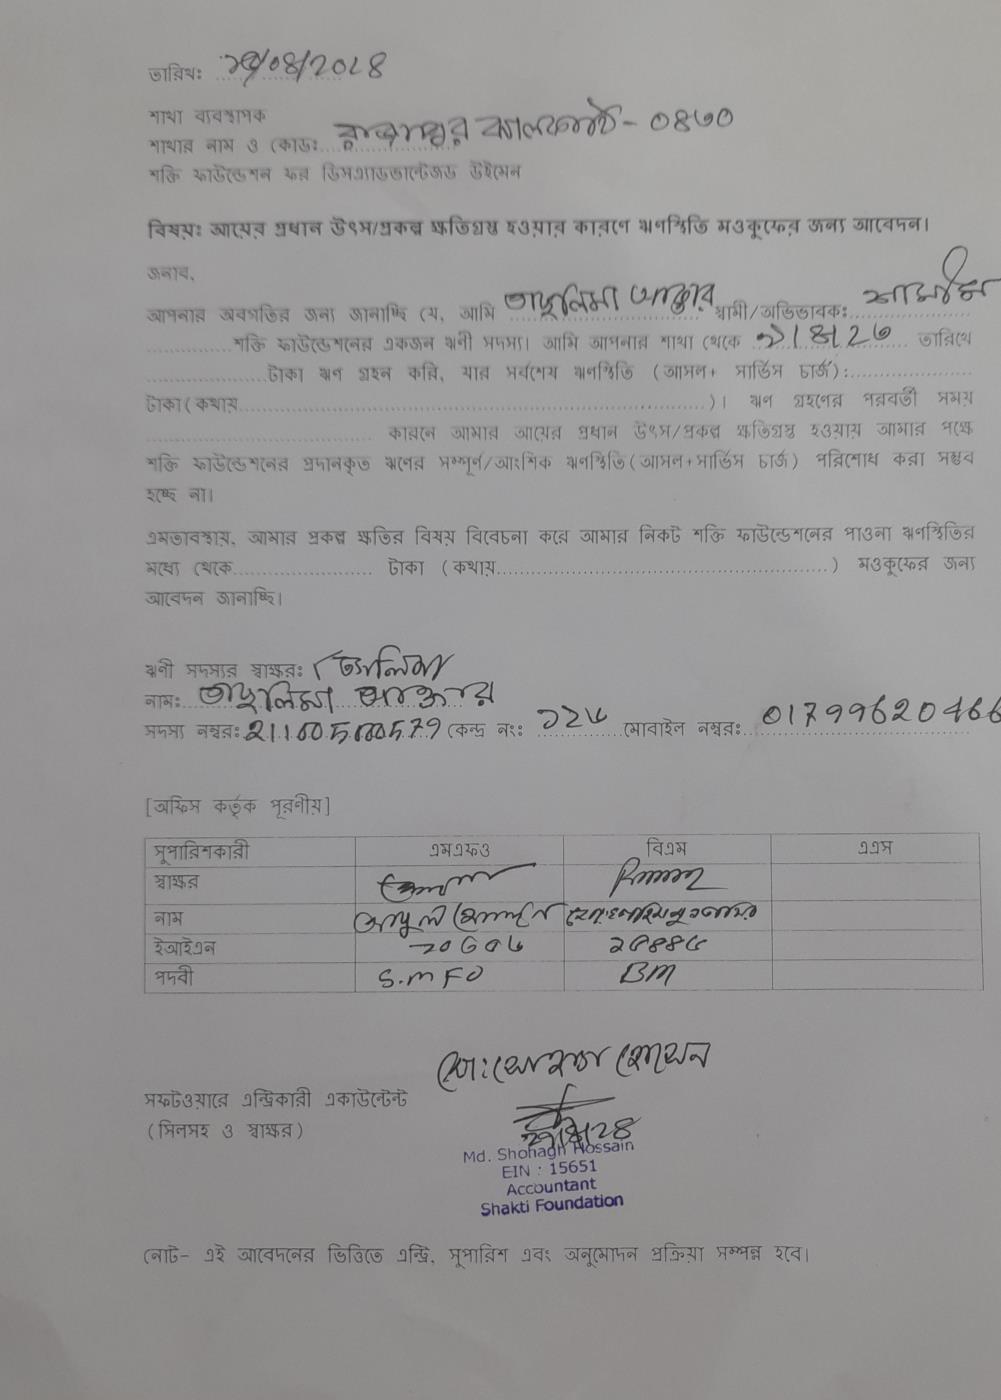 তারিখ: ২৫/০৪/২০২৪
শাখা ব্যবস্থাপক
শাখার নাম ও কোড: - ০৪৬০
শক্তি ফাউন্ডেশন ফর ডিসএ্যাডভান্টেজড উইমেন
বিষয়ঃ আয়ের প্রধান উৎস/প্রকল্প ক্ষতিগ্রস্ত হওয়ার কারণে ঋণস্থিতি মওকুফের জন্য আবেদন।
জনাব,
আপনার অবগতির জন্য জানাচ্ছি যে, আমি তাছলিমা আক্তার স্বামী/অভিভাবক: শামীম
শক্তি ফাউন্ডেশনের একজন ঋণী সদস্য। আমি আপনার শাখা থেকে তারিখে
টাকা ঋণ গ্রহন করি, যার সর্বশেষ ঋণস্থিতি (আসল+ সার্ভিস চার্জ):
টাকা(কথায়)। ঋণ গ্রহণের পরবর্তী সময়
কারনে আমার আয়ের প্রধান উৎস/প্রকল্প ক্ষতিগ্রস্ত হওয়ায় আমার পক্ষে
শক্তি ফাউন্ডেশনের প্রদানকৃত ঋণের সম্পূর্ণ/আংশিক ঋণস্থিতি(আসল+সার্ভিস চার্জ) পরিশোধ করা সম্ভব
হচ্ছে না।
এমতাবস্থায়, আমার প্রকল্প ক্ষতির বিষয় বিবেচনা করে আমার নিকট শক্তি ফাউন্ডেশনের পাওনা ঋণস্থিতির
মধ্যে থেকে টাকা (কথায়) মওকুফের জন্য
আবেদন জানাচ্ছি।
ঋণী সদস্যর স্বাক্ষর:
নাম: তাছলিমা আক্তার
সদস্য নম্বর: কেন্দ্র নং: ১২৬ মোবাইল নম্বর: 01799620466
[অফিস কর্তৃক পূরণীয়]
সুপারিশকারী এমএফও বিএম এএস
স্বাক্ষর
নাম আবুল হোসেন
ইআইএন
পদবী S.MFO BM
মো: সোহাগ হোসেন
সফটওয়ারে এন্ট্রিকারী একাউন্টেন্ট
(সিলসহ ও স্বাক্ষর)
Md. Shohagh Hossain
EIN : 15651
Accountant
Shakti Foundation
নোট- এই আবেদনের ভিত্তিতে এন্ট্রি, সুপারিশ এবং অনুমোদন প্রক্রিয়া সম্পন্ন হবে।